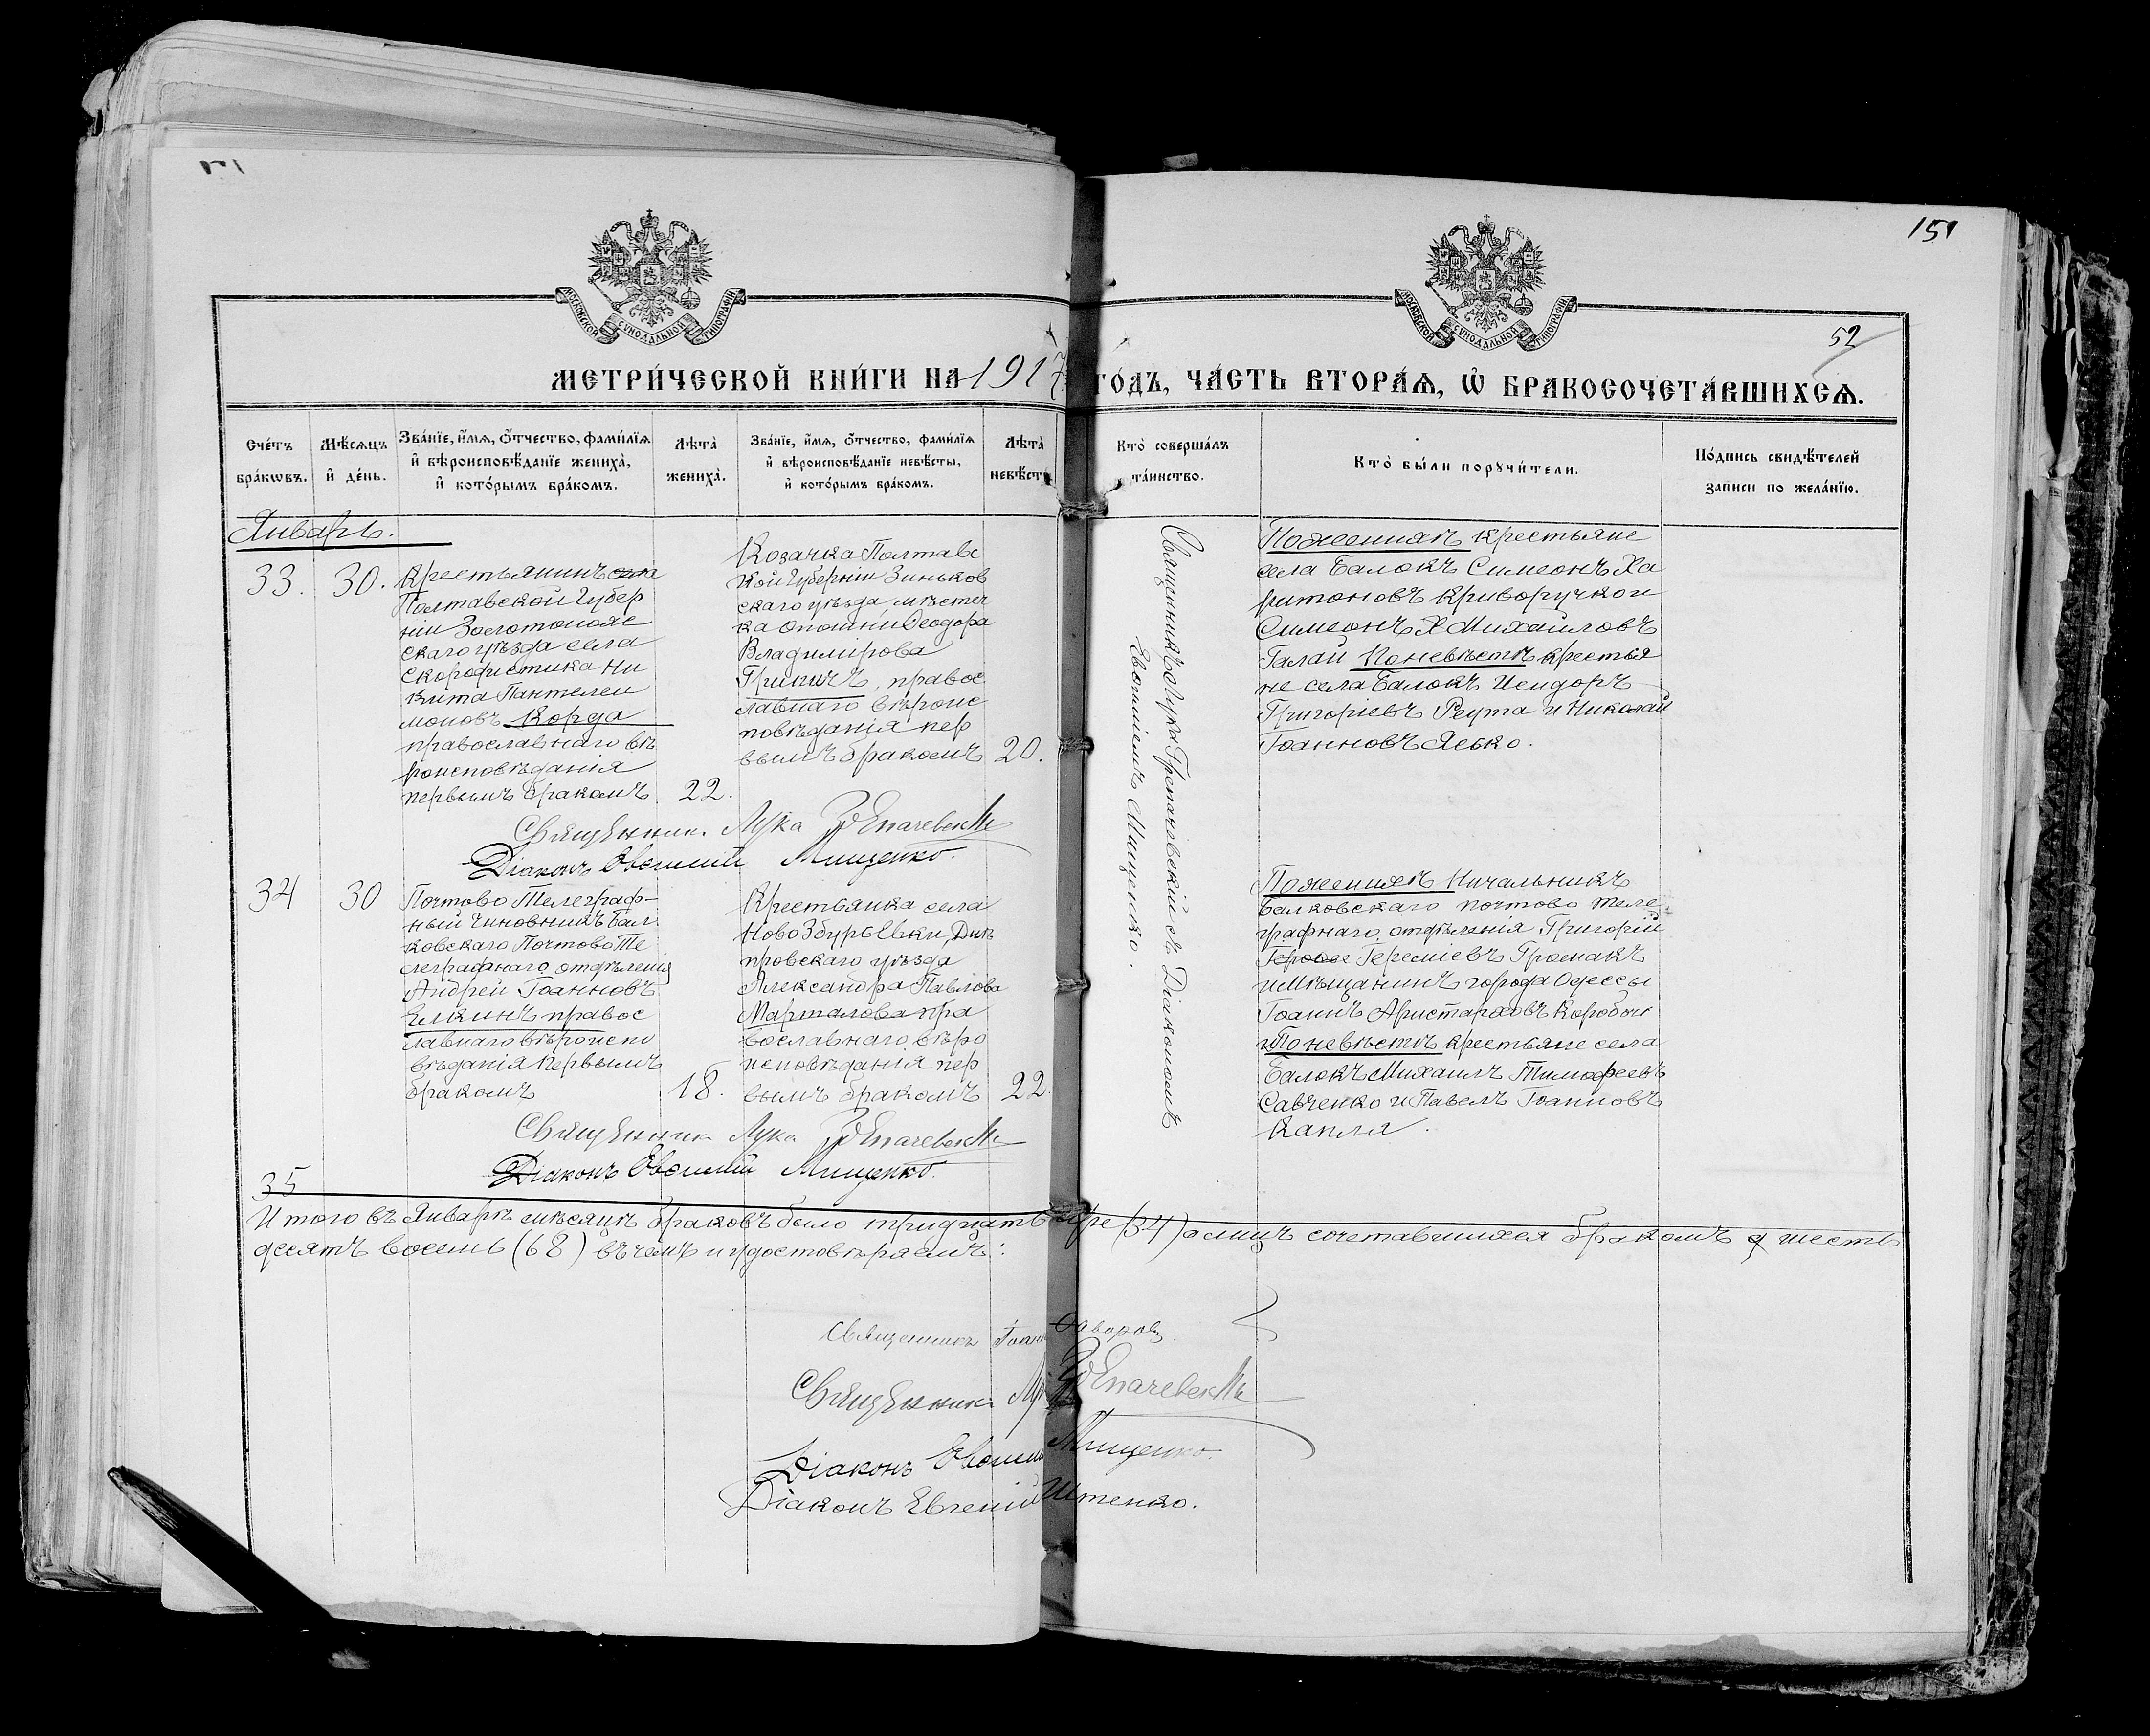 151
52
МОСКОВСКОЙ СѴНОДАЛЬНОЙ ТИПОГРАФІИ
МОСКОВСКОЙ СѴНОДАЛЬНОЙ ТИПОГРАФІИ
МЕТРИ́ЧЕСКОЙ КНИ́ГИ НА 1917 ГО́ДЪ, ЧА́СТЬ ВТОРА́Я, Ѡ҆ БРАКОСОЧЕТА́ВШИХСЯ.
Сче́тъ
бра́кωвъ.
Мѣ́сяцъ
и҆ де́нь.
Зва́нїе, и҆́мя, ѻ҆́тчество, фами́лїя
и҆ вѣроисповѣ́данїе жениха̀,
и҆ кото́рымъ бра́комъ.
Лѣта̀
жениха̀.
Зва́нїе, и҆́мя, ѻ҆́тчество, фами́лїя
и҆ вѣроисповѣ́данїе невѣ́сты,
и҆ кото́рымъ бра́комъ.
Лѣта̀
невѣ́сты
Кто̀ соверша́лъ
та́инство.
Кто̀ бы́ли порꙋчи́тели.
По́дпись свидѣ́телей
за́писи по жела́нїю.
Январь.
33.
30.
Крестьянинъ села
Полтавской Губер
ніи Золотонояс
скаго уѣзда села
Скорофистика Ни
кита Пантелеи
моновъ Корда
православнаго вѣ
роисповѣданія
первымъ бракомъ
22.
Козачка Полтавс
кой Губерніи Зиньков
скаго уѣзда, мѣстеч
ка Опошни Ѳеодора
Владимірова
Грипичъ, правос
лавнаго вѣроис
повѣданія пер
вымъ бракомъ
20.
Священникъ Лука Грепачевскій съ Діакономъ
Евѳиміемъ Мищенко.
По женихѣ крестьяне
села Балокъ Симеонъ Ха
ритоновъ Криворучко и
Симеонъ Михайловъ
Галай По невѣстѣ крестья
не села Балокъ Исидоръ
Григоріевъ Реута и Николай
Іоанновъ Ясько.
Священник Лука Грепачевскій
Діаконъ Евѳимій Мищенко.
34
30
Почтово Телеграф-
ный Чиновникъ Бал
ковскаго Почтово Те
леграфнаго отдѣленія
Андрей Іоанновъ
Елкинъ правос
лавнаго вѣроиспо
вѣданія первымъ
бракомъ
18.
Крестьянка села
Ново Збурьевки, Днѣ
провскаго уѣзда
Александра Павлова
Марталова пра
вославнаго вѣро
исповѣданія пер
вымъ бракомъ
22.
По женихѣ Начальникъ
Балковскаго почтово теле
графнаго отдѣленія Григорій
Іереміевъ Громакъ
и Мѣщанинъ города Одессы
Іоаннъ Аристарховъ
и По невѣстѣ крестьяне села
Балокъ Михаилъ Тимофеевъ
Савченко и Павелъ Іоанновъ
Капля.
Священник Лука Грепачевскій
Діаконъ Евѳимій Мищенко.
35
Итого въ Январѣ мѣсяцѣ браковъ было тридцать четыре (34) а лицъ сочетавшихся бракомъ шесть
десятъ восемь (68) въ чемъ и удостовѣряемъ:
Священникъ Іоаннъ Ѳаворовъ
Священник Лука Грепачевскій
Діаконъ Евѳимій Мищенко.
Діаконъ Евгеній Итенко.